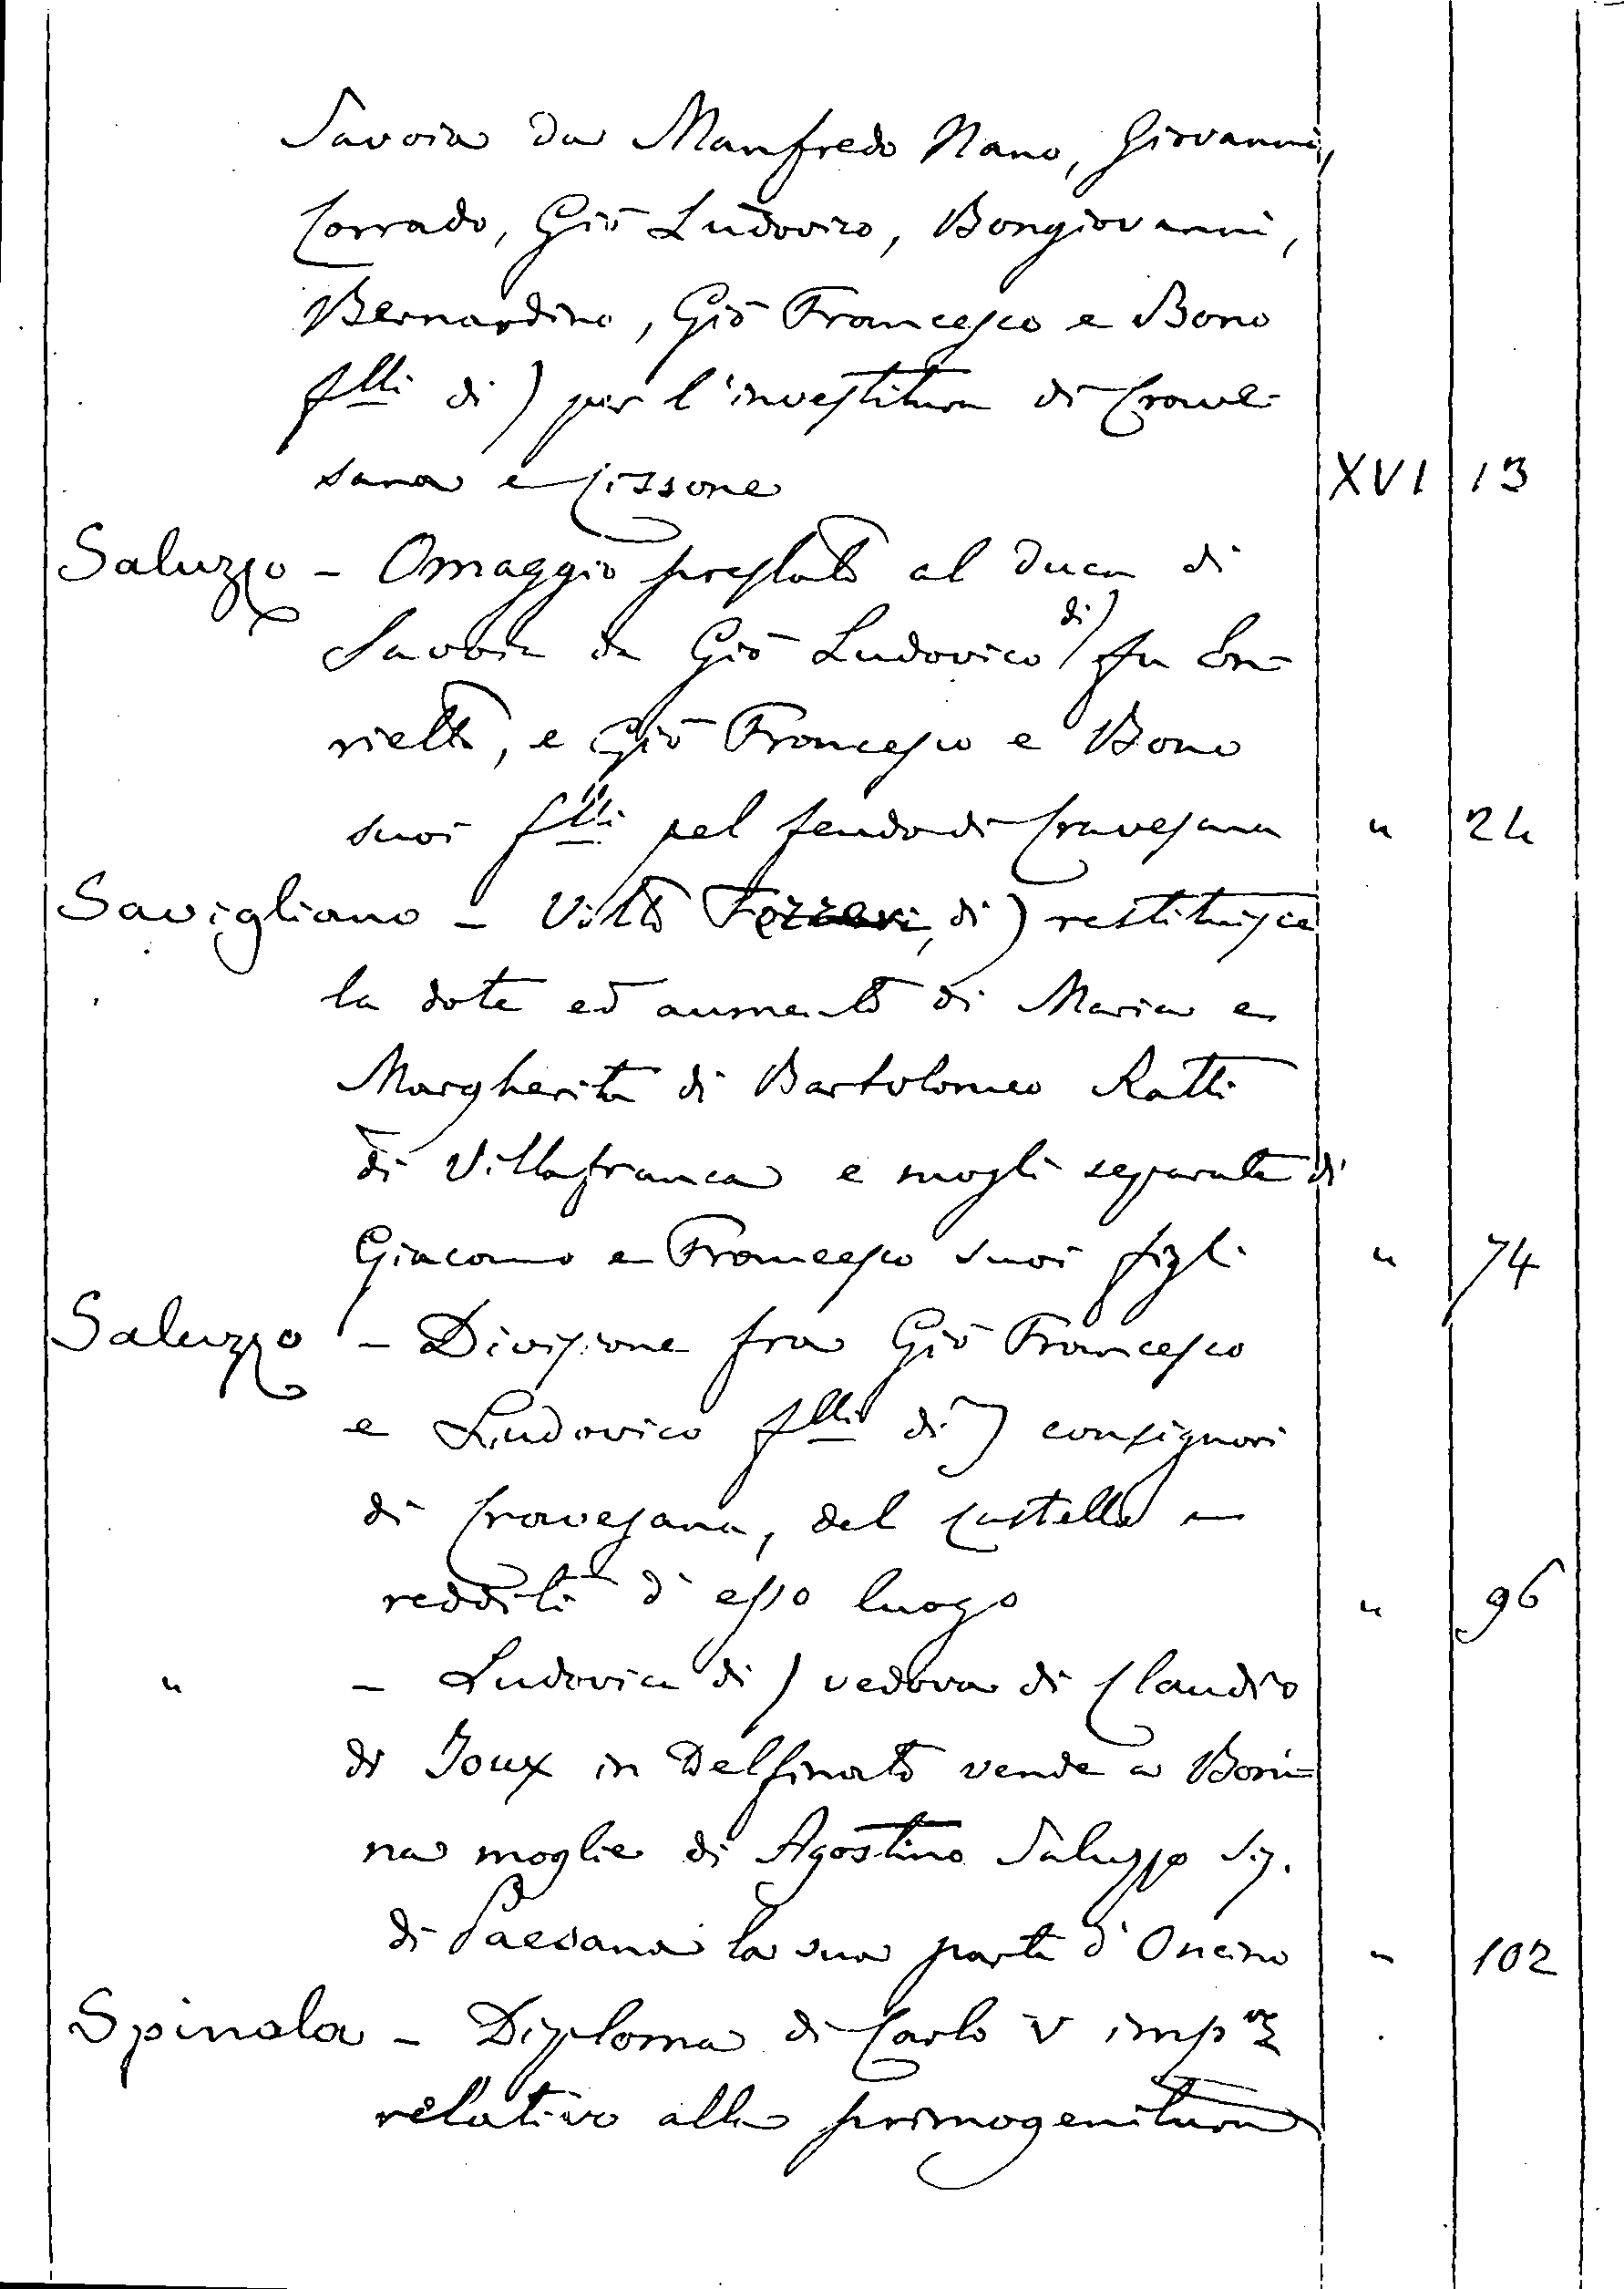 Savoia da Manfredo Nano, Giovanni,
Corrado, Giō Ludovico, Bongiovanni,
Bernardino, Giō Francesco e Bono
flli di) per l'investitura di Crave-
sana e Cissone XVI 13
Saluzzo - Omaggio prestato al Duca di
Savoia da Giō Ludovico di) fu En-
rietto, e Giō Francesco e Bono
suoi flli pel feudo di Cravesana " 24
Savigliano - Vitto di) restituisce
la dote ed aumento di Maria e
Margherita di Bartolomeo Ratti
di Villafranca e mogli separate di
Giacomo e Francesco suoi figli " 74
Saluzzo - Divisione fra Giō Francesco
e Ludovico flli di) consignori
di Cravesana, del castello e
redditi d'esso luogo " 96
" - Ludovica di) vedova di Claudio
di Joux in Delfinato vende a Boni=
na moglie di Agostino Saluzzo Sig.
di Paesana la sua parte d'Oncino " 102
Spinola - Diploma di Carlo V imp.re
relativo alla primogenitura